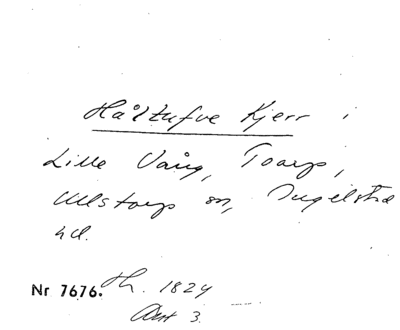 Håltufve Kjerr i
Lille Vång, Toarp,
Ullstorps sn, Ingelstad
hd.
Nr 7676. Th. 1824
Akt 3.